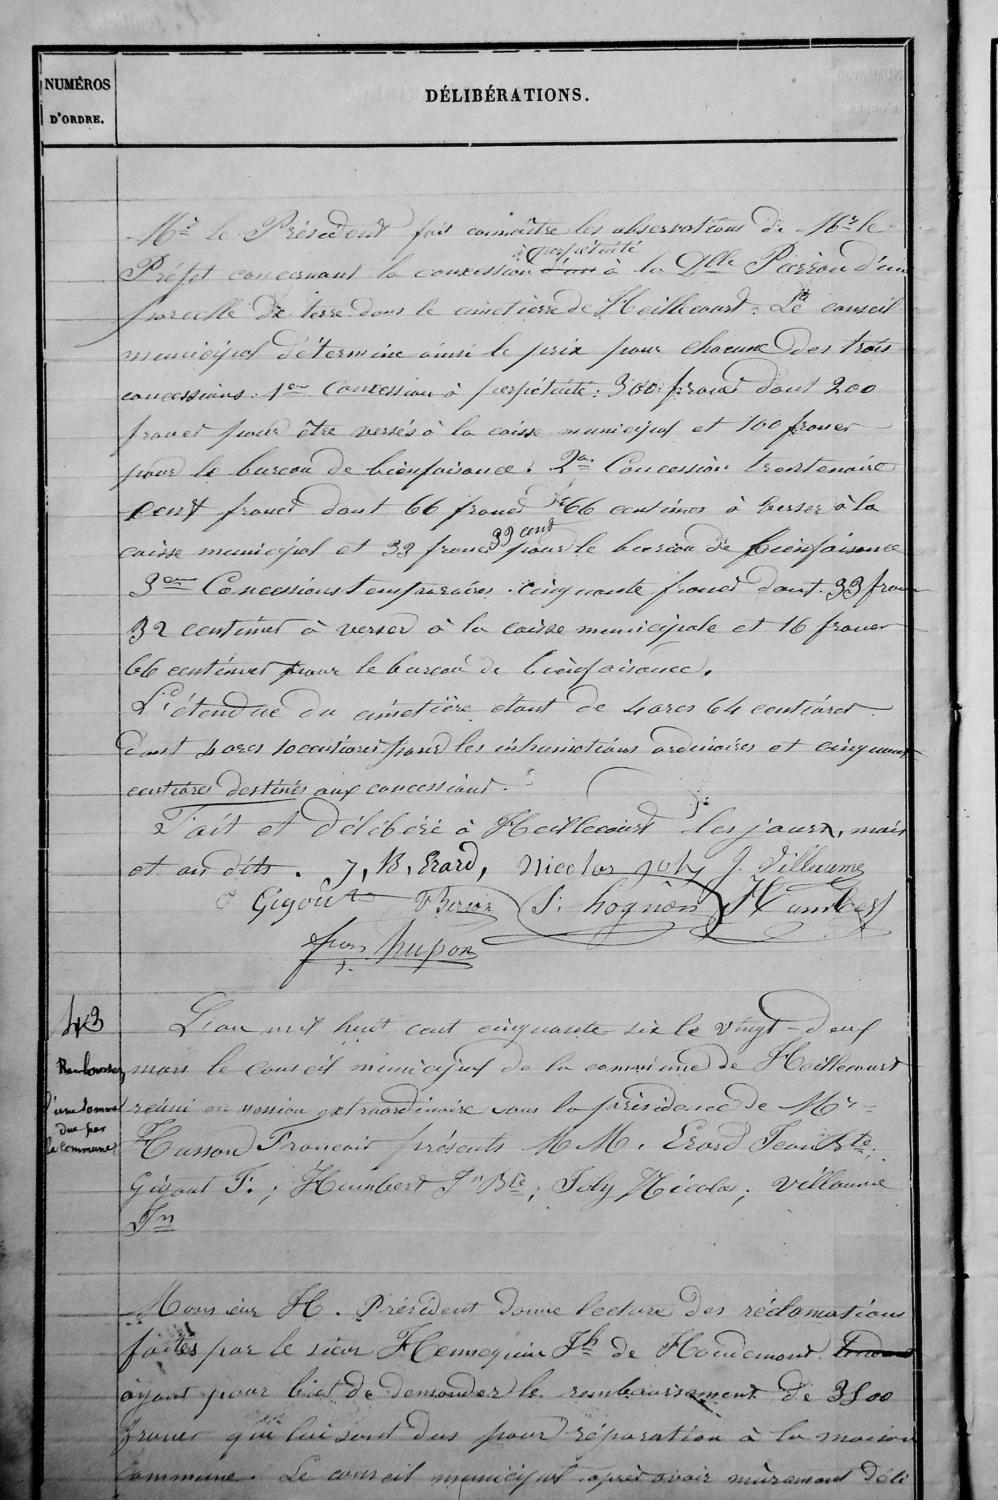 NUMÉROS
D'ORDRE.
DÉLIBÉRATIONS.
Mr le Président fait connaître les observations de Mr le
à perpétuité
Préfet concernant la concession à la Dlle Pierron d'une
parcelle de terre dans le cimetierre de Heillecourt. Le conseil
municipal détermine ainsi le prix pour chacune des trois
concessions. 1er Concession à perpétuité: 300 francs dont 200
francs pour être versés à la caisse municipal et 100 francs
pour le bureau de bienfaisance. 2e Concession trentenaire
cent francs dont 66 francs 66 centimes à verser à la
33 cent
caisse municipal et 33 francs pour le bureau de bienfaisance
3em Concessions temporaires cinquante francs dont 33 francs
32 centimes à verser à la caisse municipale et 16 francs
66 centimes pour le bureau de bienfaisance.
L'étendue du cimetière étant de 4 ares 64 centiares
dont 4 ares 10 centiares pour les inhumations ordinaires et cinquante
centiares destinés aux concessions.
Fait et délibéré à Heillecourt les jours, mois
et an dits. J, B, Erard, Nicolas Joly J. Villaume
Gigout S. hognon Humbert
fran hupon
43
L'an mil huit cent cinquante six le vingt-deux
Rembourser
mars le conseil municipal de la commune de Heillecourt
d'une somme
réuni en session extraordinaire sous la présidence de Mr
due par
la commune
Husson François présents MM. Erard Jean Bte;
Gigout F.; Humbert Jn Bte; Joly Nicolas; Villaume
Jn
Monsieur H. Président donne lecture des réclamations
faites par le sieur Hennequin Jh de Houdemont
ayant pour but de demander le remboursement de 3500
francs qui lui sont dus pour réparation à la maison
commune. Le conseil municipal après avoir mûrement déli